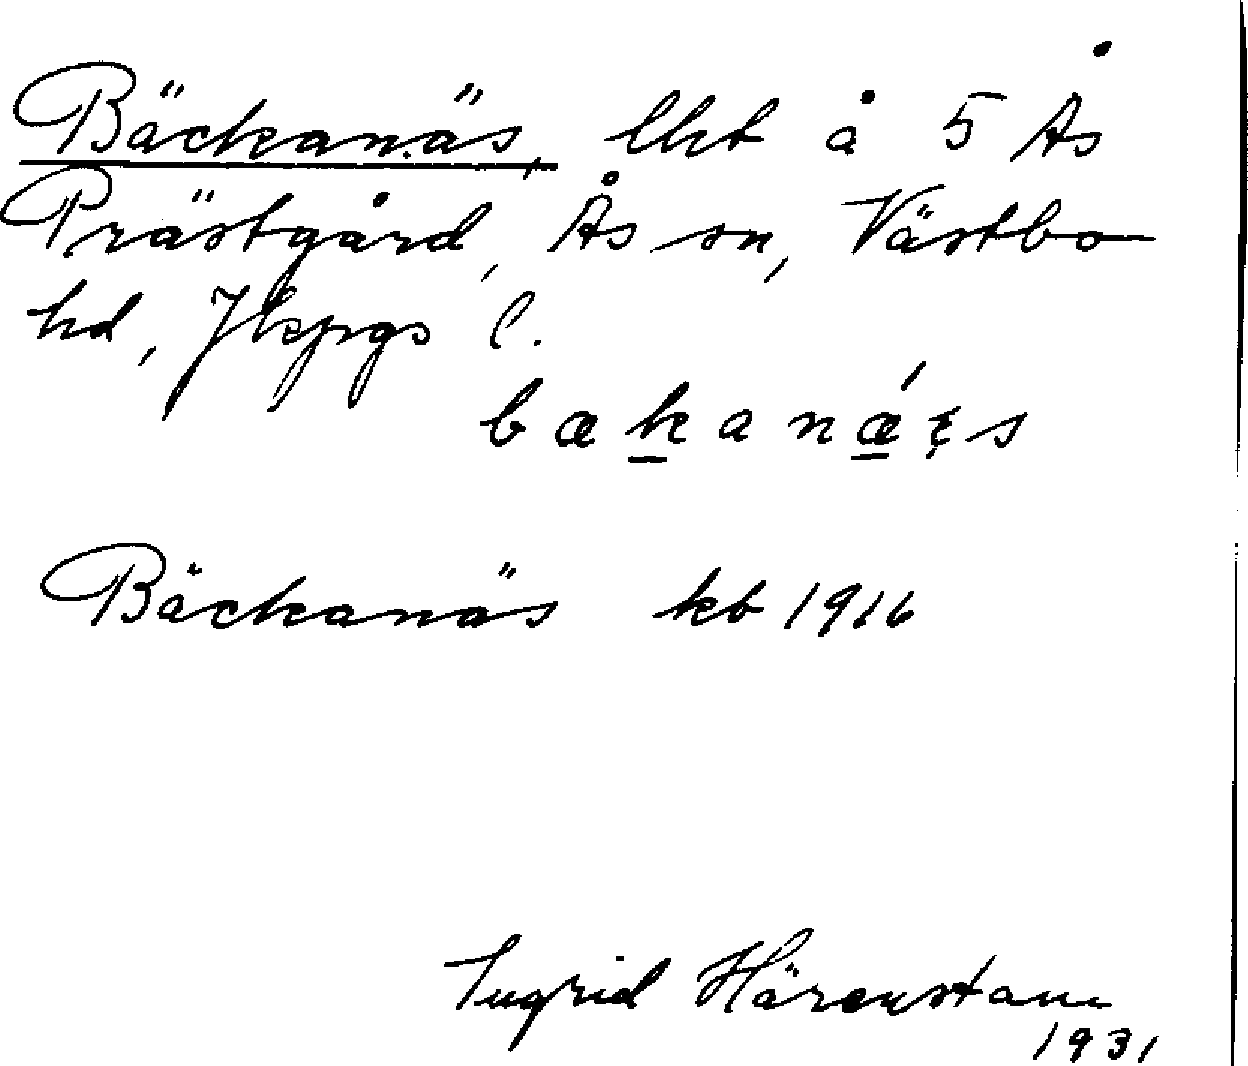 Bäckanäs, lht å 5 Ås
Prästgård, Ås sn, Västbo
hd, Jkpgs l.
bækanǽɛs
Bäckanäs kb 1916
Ingrid Härenstam
1931